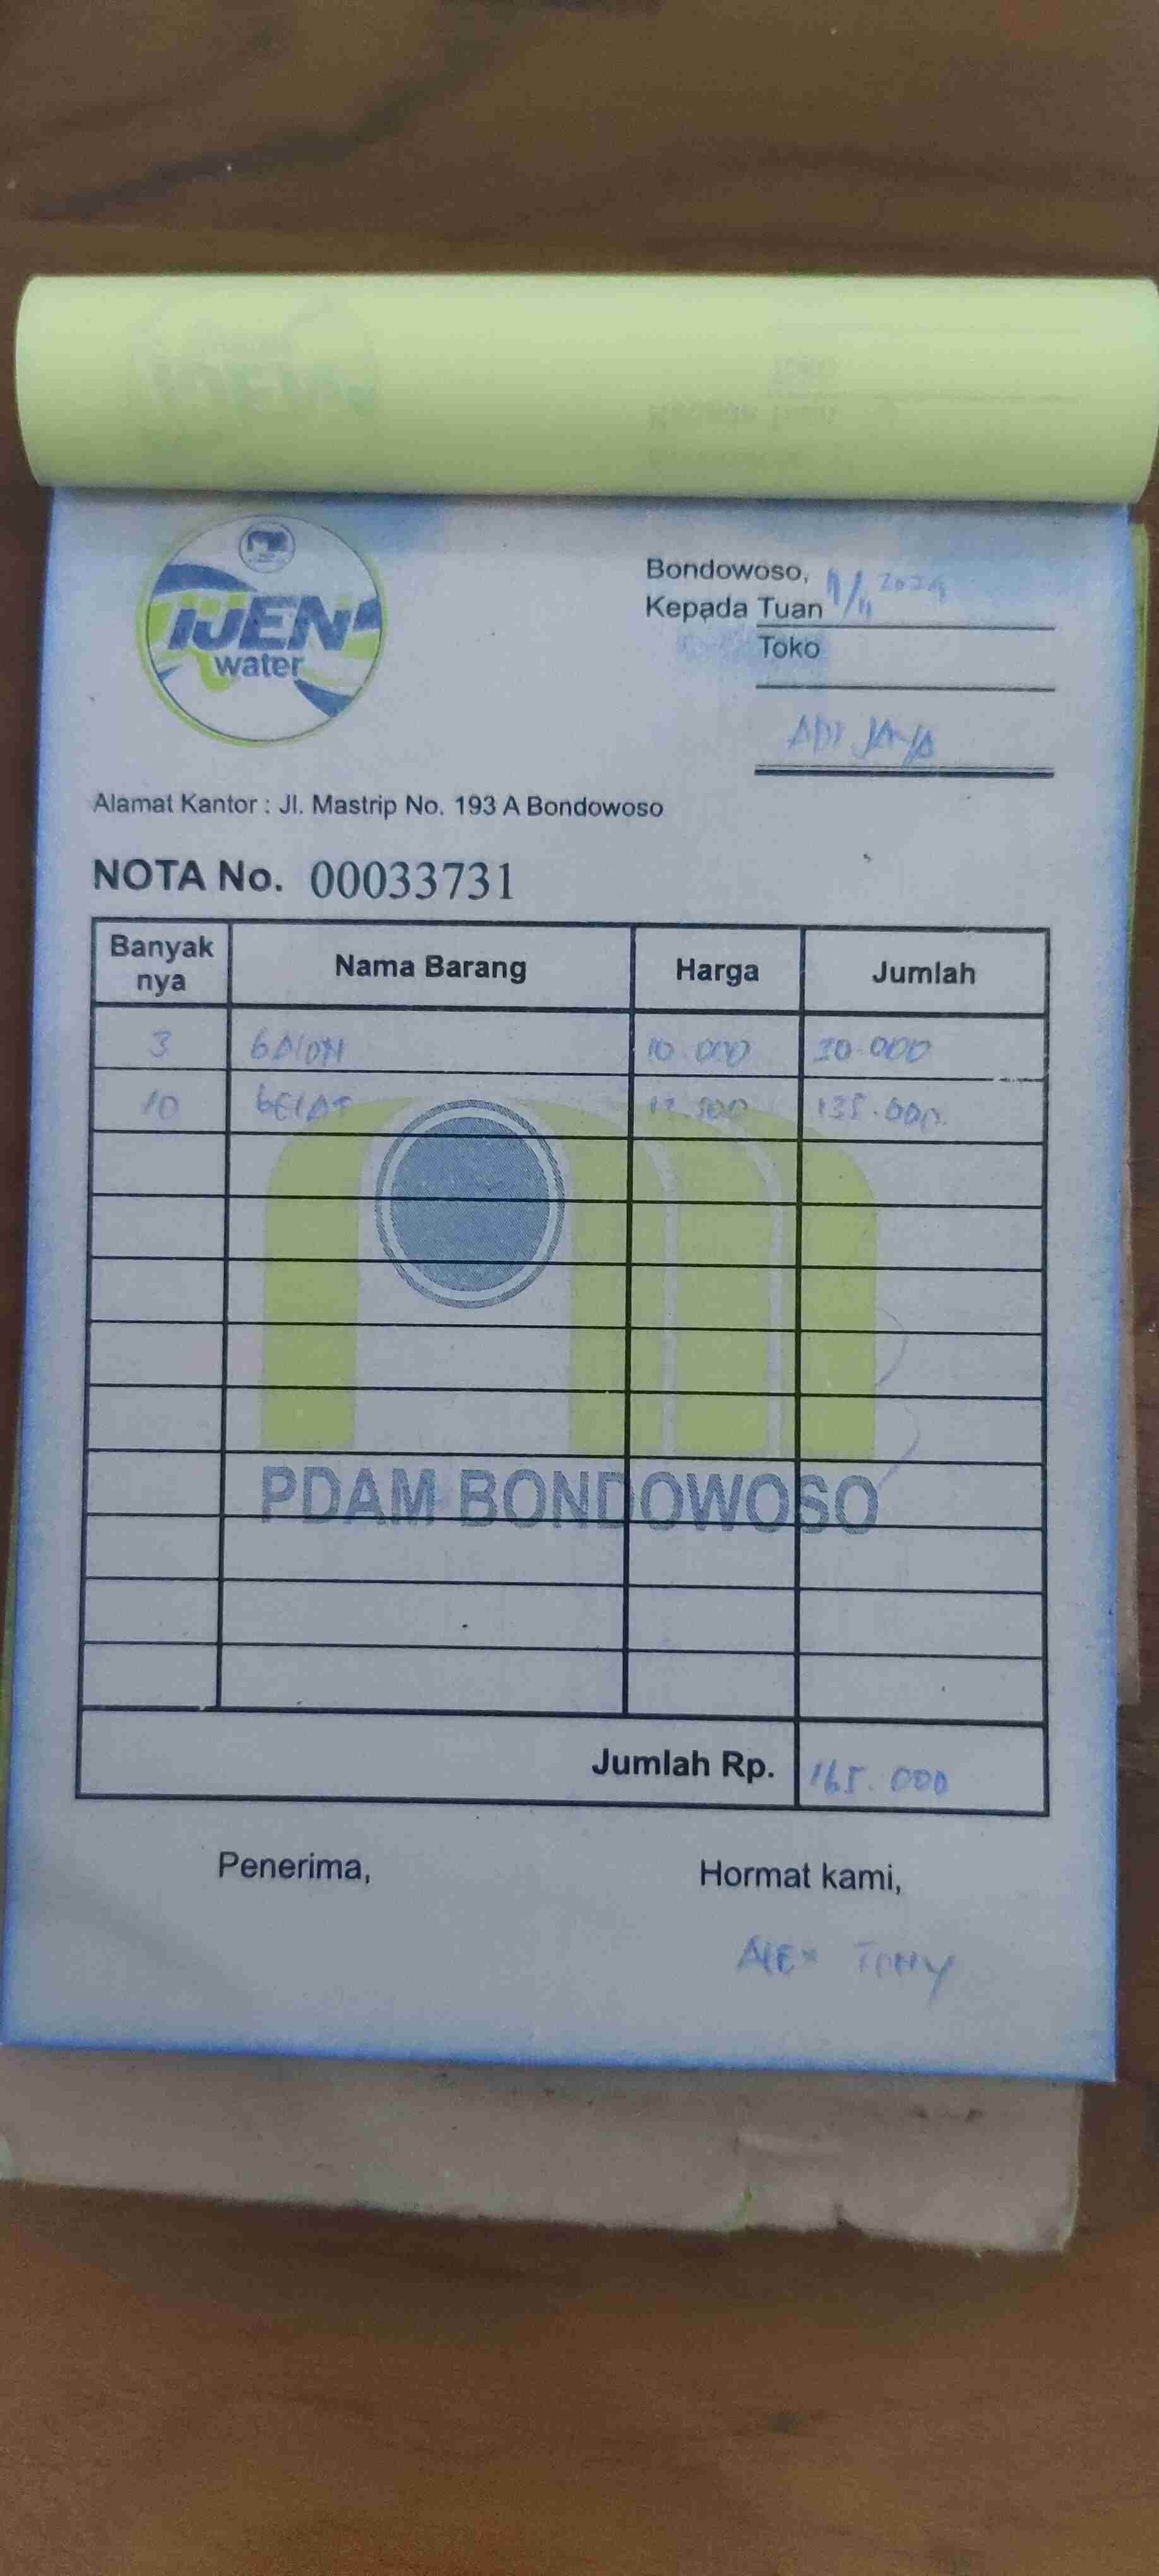 IJEN
water
Bondowoso, 2024
Kepada Tuan
Toko
ADI JAYA
Alamat Kantor : Jl. Mastrip No. 193 A Bondowoso
NOTA No. 00033731
Banyak nya Nama Barang Harga Jumlah
3 GALON 10.000 30.000
10 GELAS 135.000
PDAM BONDOWOSO
Jumlah Rp. 165.000
Penerima, Hormat kami,
ALEX TONY